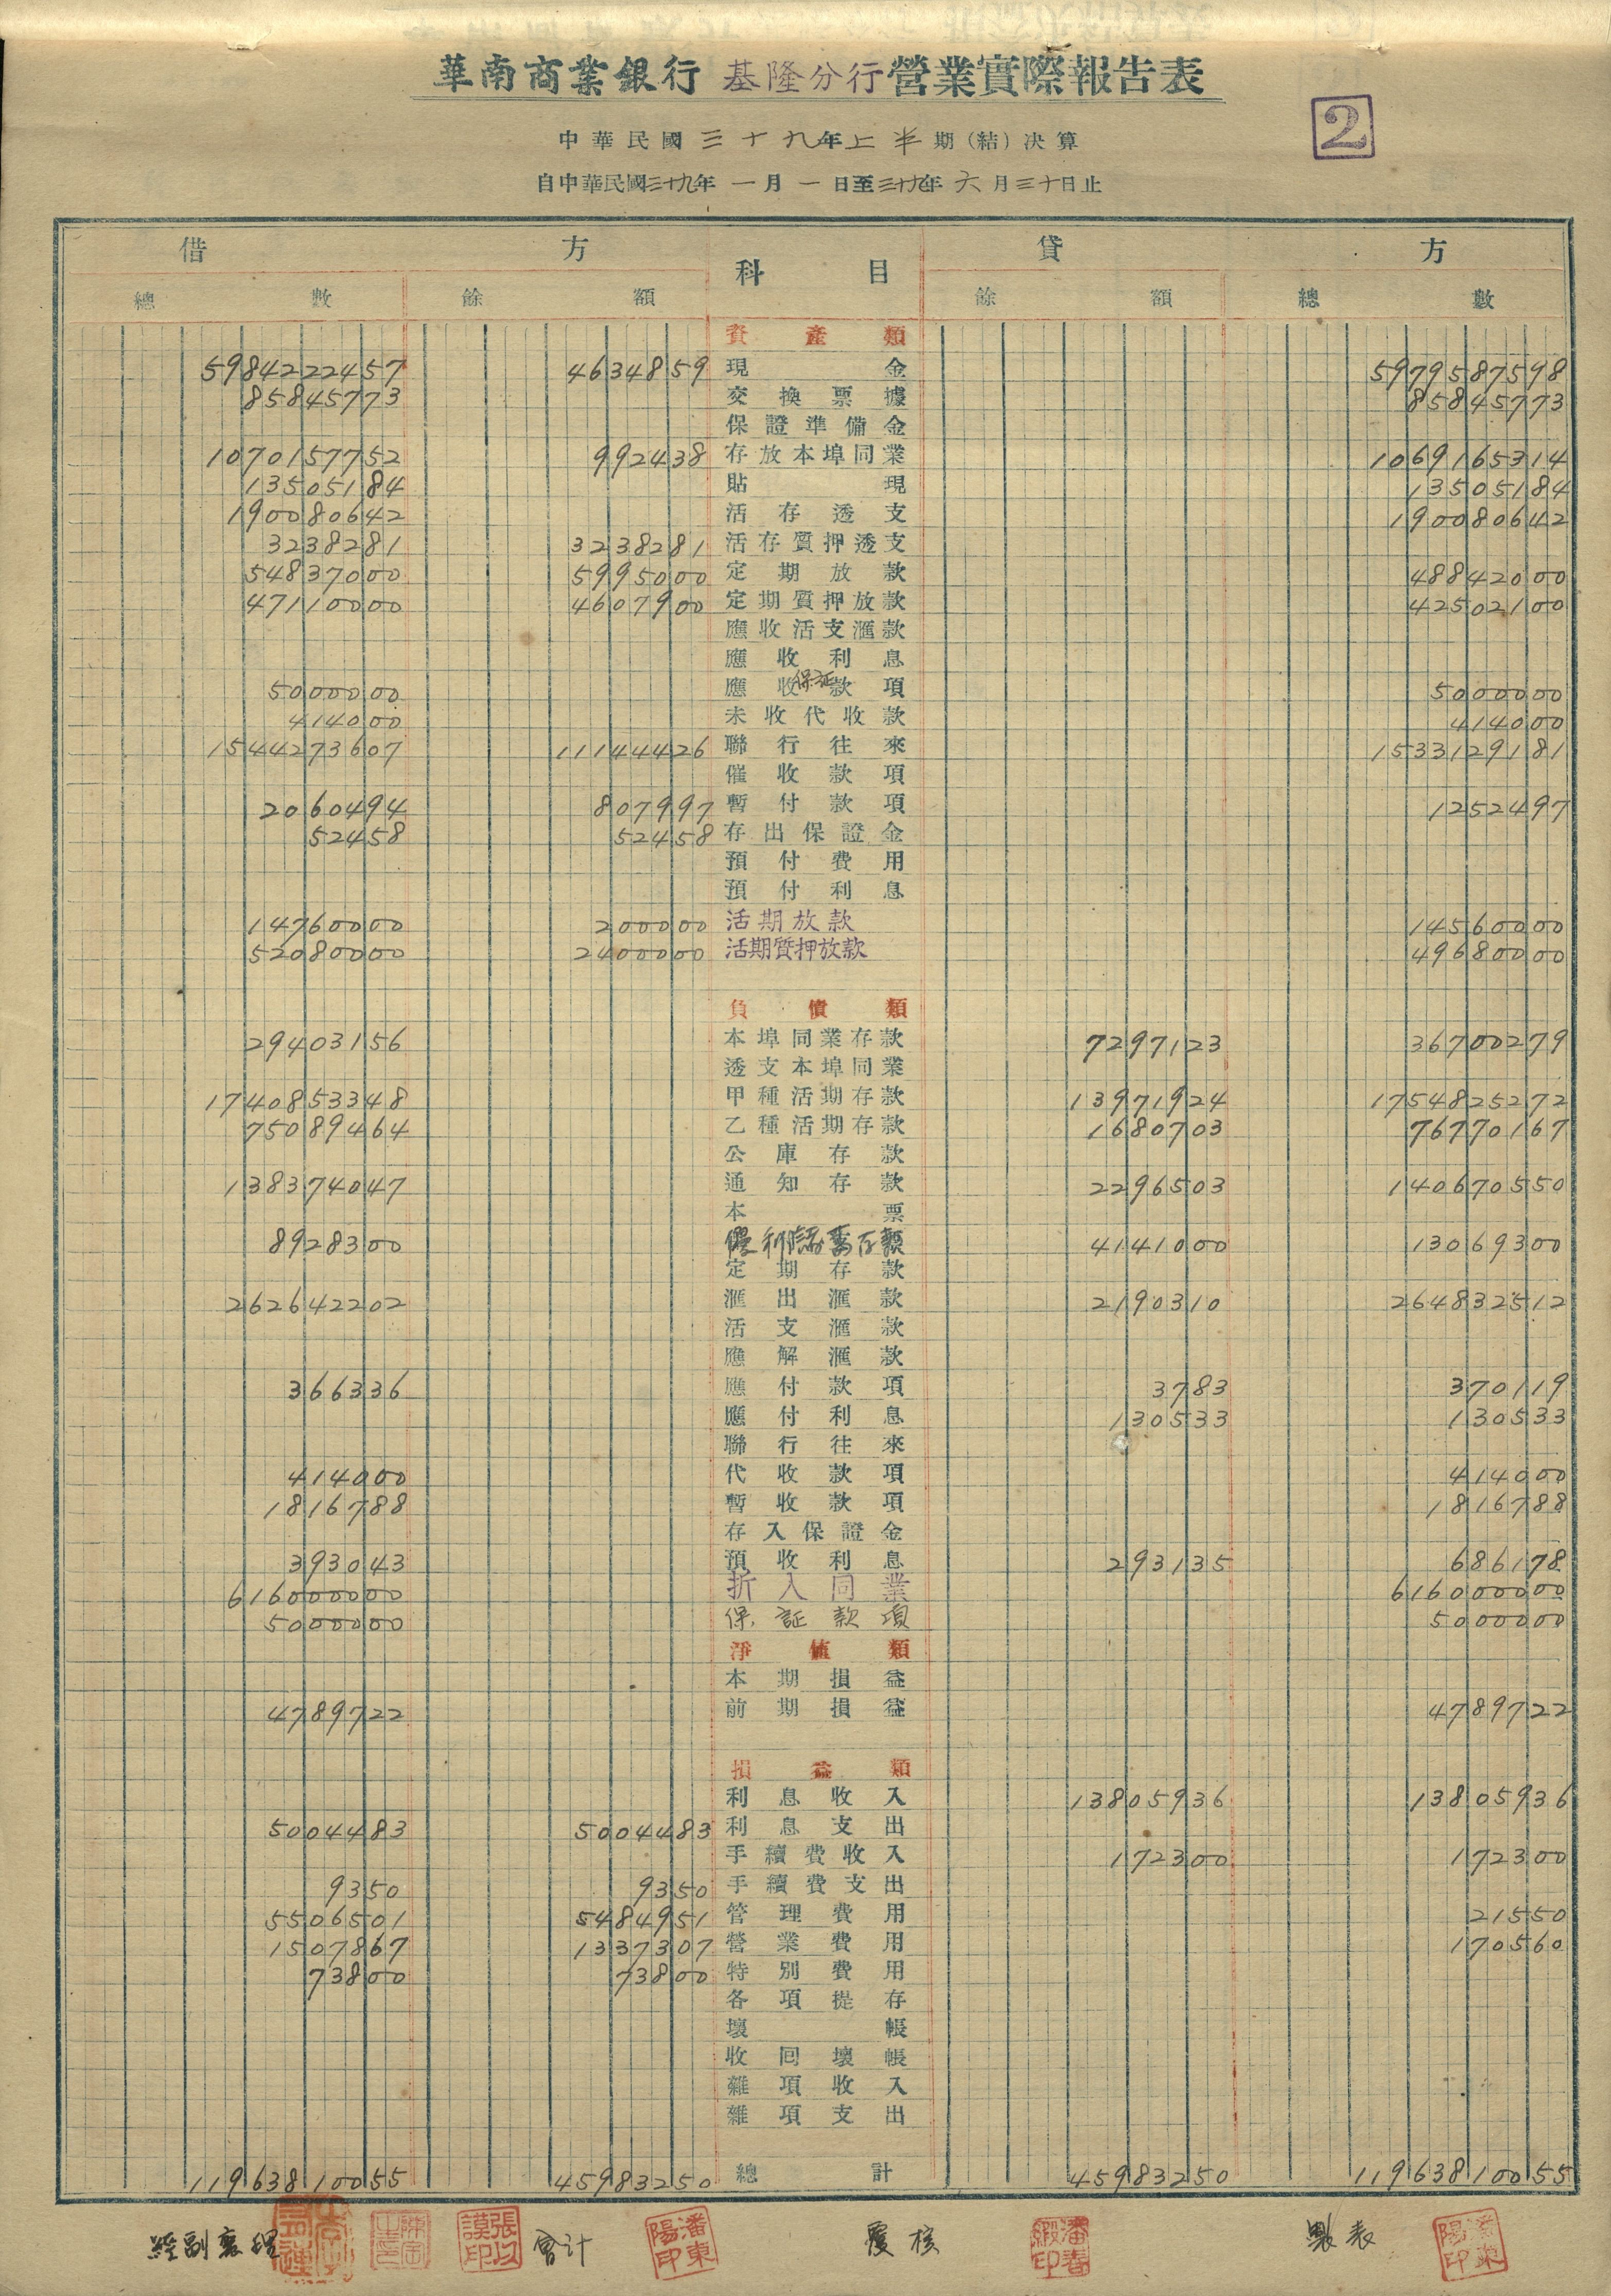 華南商業銀行 基隆分行 營業實際報告表
2
中華民國三十九年上半期(結)決算
自中華民國三十九年一月一日至三十九年六月三十日止
借方 科目 貸方
總數 餘額 餘額 總數
資產類
5984222457 4634859 現金 5979587598
85845773 交換票據 85845773
保證準備金
1070157752 992438 存放本埠同業 1069165314
13505184 貼現 13505184
190080642 活存透支 190080642
3238281 3238281 活存質押透支
54837000 5995000 定期放款 48842000
47110000 4607900 定期質押放款 42502100
應收活支滙款
應收利息
5000000 應收保証款項 5000000
414000 未收代收款 414000
1544273607 11144426 聯行往來 1533129181
催收款項
2060494 807997 暫付款項 1252497
52458 52458 存出保證金
預付費用
預付利息
14760000 200000 活期放款 14560000
52080000 2400000 活期質押放款 49680000
負債類
29403156 本埠同業存款 7297123 36700279
透支本埠同業
1740853348 甲種活期存款 13971924 1754825272
75089464 乙種活期存款 1680703 76770167
公庫存款
138374047 通知存款 2296503 140670550
本票
8928300 優利儲蓄存款 4141000 13069300
定期存款
262642202 滙出滙款 2190310 264832512
活支滙款
應解滙款
366336 應付款項 3783 370119
應付利息 130533 130533
聯行往來
414000 代收款項 414000
1816788 暫收款項 1816788
存入保證金
393043 預收利息 293135 686178
616000000 折入同業 616000000
5000000 保証款項 5000000
淨値類
本期損益
4789722 前期損益 4789722
損益類
利息收入 13805936 13805936
5004483 5004483 利息支出
手續費收入 172300 172300
9350 9350 手續費支出
5506501 5484951 管理費用 21550
1507867 1337307 營業費用 170560
73800 73800 特別費用
各項提存
壞帳
收回壞帳
雜項收入
雜項支出
11963810055 45983250 總計 45983250 11963810055
經副襄理 張以謨印 會計 潘東陽印 覆核 製表 潘東陽印